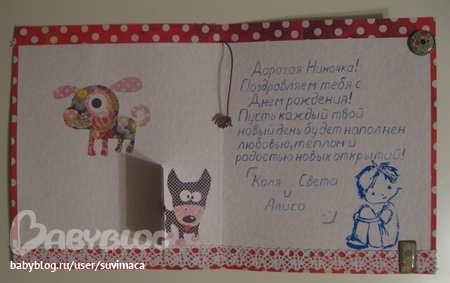 Дорогая Ниночка!
Поздравляем тебя с
Днем рождения!
Пусть каждый твой
новый день будет наполнен
любовью, теплом и
радостью новых открытий!
Коля Света
и
Алиса
:-)
BABYBLOG
babyblog.ru/user/suvimaca